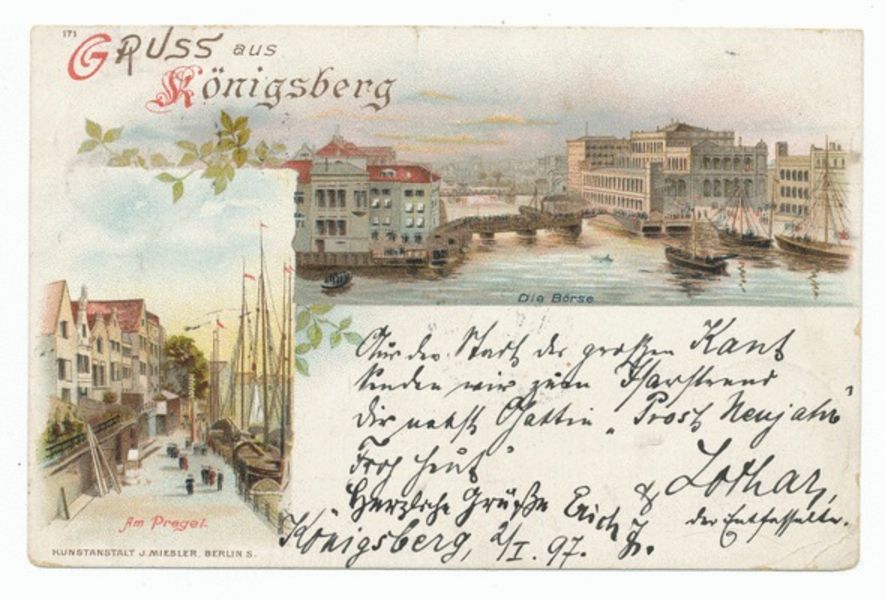 171
Gruss aus
Königsberg
Die Börse
Am Pregel.
KUNSTANSTALT J. MIESLER, BERLIN S.
Aus der Stadt des großen Kant
senden wir zum
Dir nebst Gattin „Prosit Neujahr"
Herzliche Grüße Erich & Lothar,
der Entfesselte.
Königsberg, 2/I. 97.